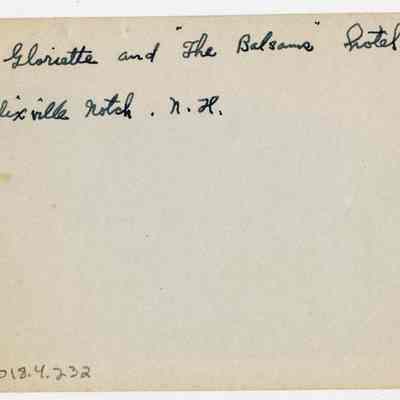 Gloriette and "The Balsams" hotel
Dixville Notch. N.H.
018.4.232